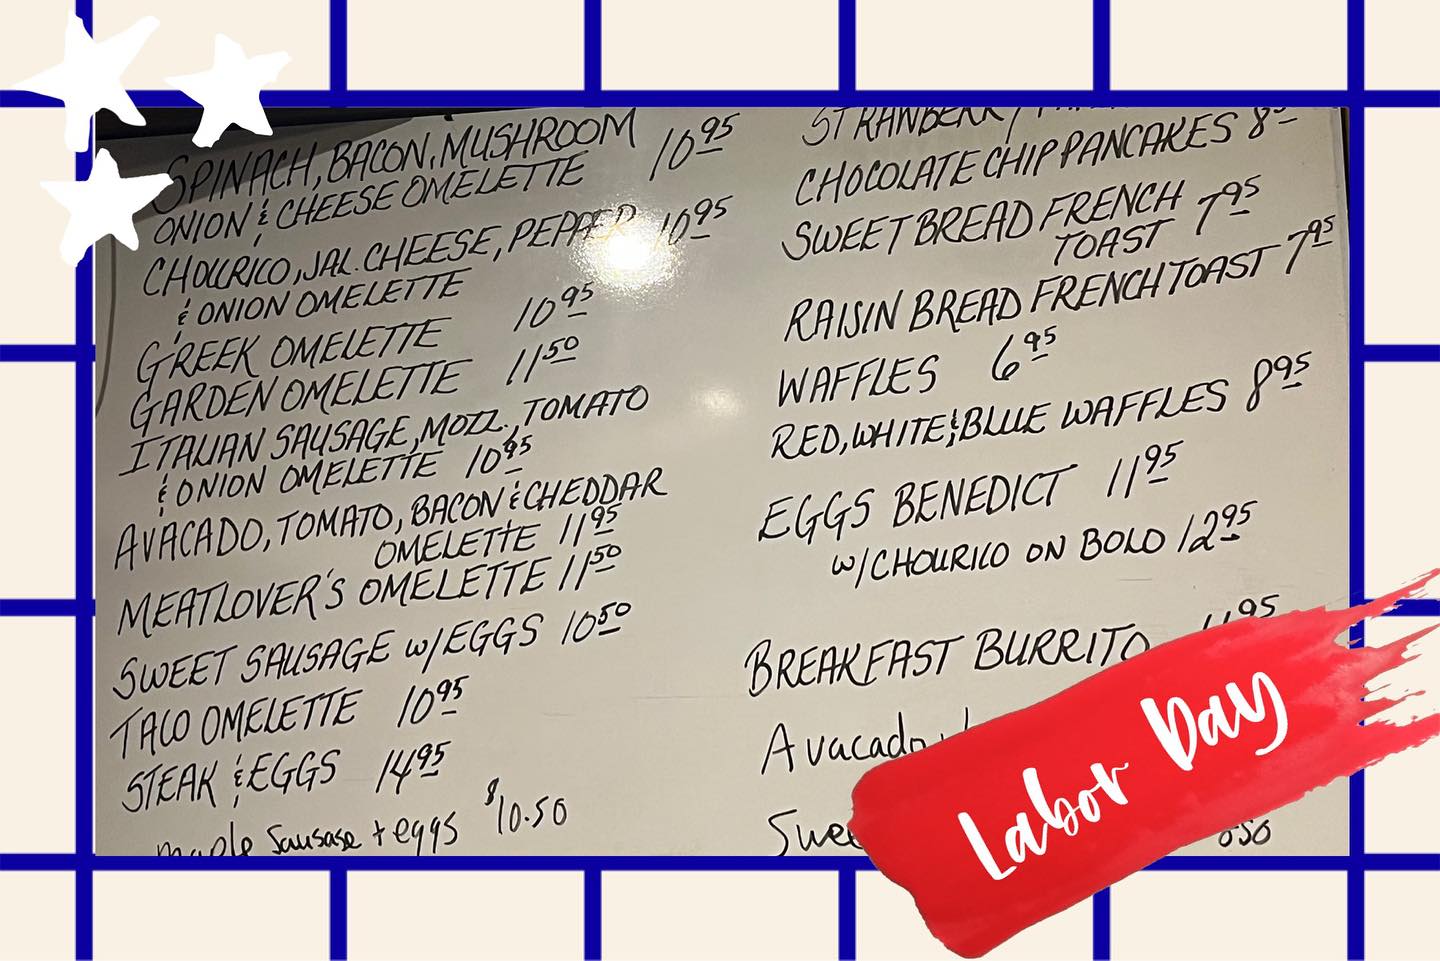 SPINACH, BACON, MUSHROOM
ONION & CHEESE OMELETTE 10 95
CHOURICO, JAL. CHEESE, PEPPER
& ONION OMELETTE 10 95
GREEK OMELETTE 10 95
GARDEN OMELETTE 11 50
ITALIAN SAUSAGE, MOZZ., TOMATO
& ONION OMELETTE 10 95
AVACADO, TOMATO, BACON & CHEDDAR
OMELETTE 11 95
MEATLOVER'S OMELETTE 11 50
SWEET SAUSAGE w/EGGS 10 50
TACO OMELETTE 10 95
STEAK & EGGS 14 95
maple Sausage + eggs $10.50
CHOCOLATE CHIP PANCAKES
SWEET BREAD FRENCH
TOAST 7 95
RAISIN BREAD FRENCH TOAST 7 95
WAFFLES 6 95
RED, WHITE & BLUE WAFFLES 8 95
EGGS BENEDICT 11 95
w/CHOURICO ON BOLO 12 95
BREAKFAST BURRITO
Avacado
Labor Day